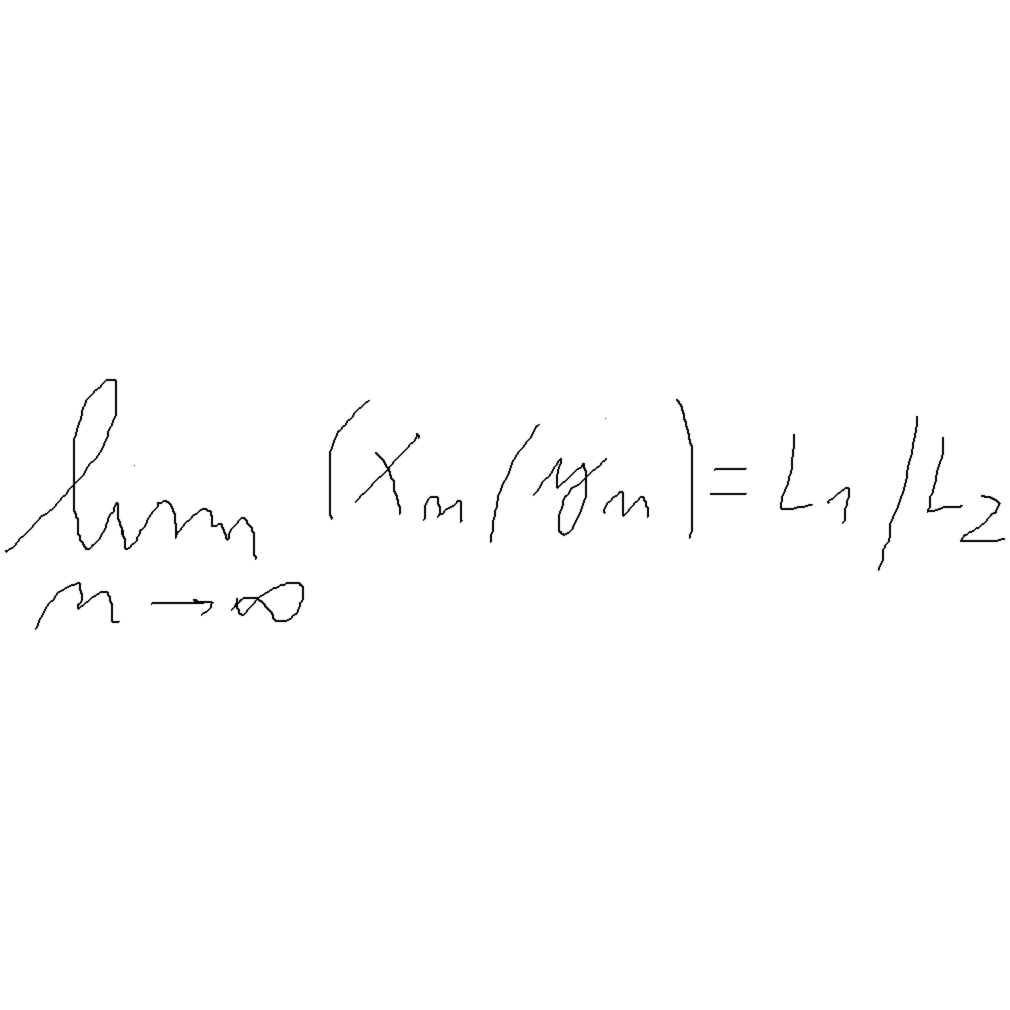 lim (xₙ/yₙ) = L₁/L₂
n → ∞